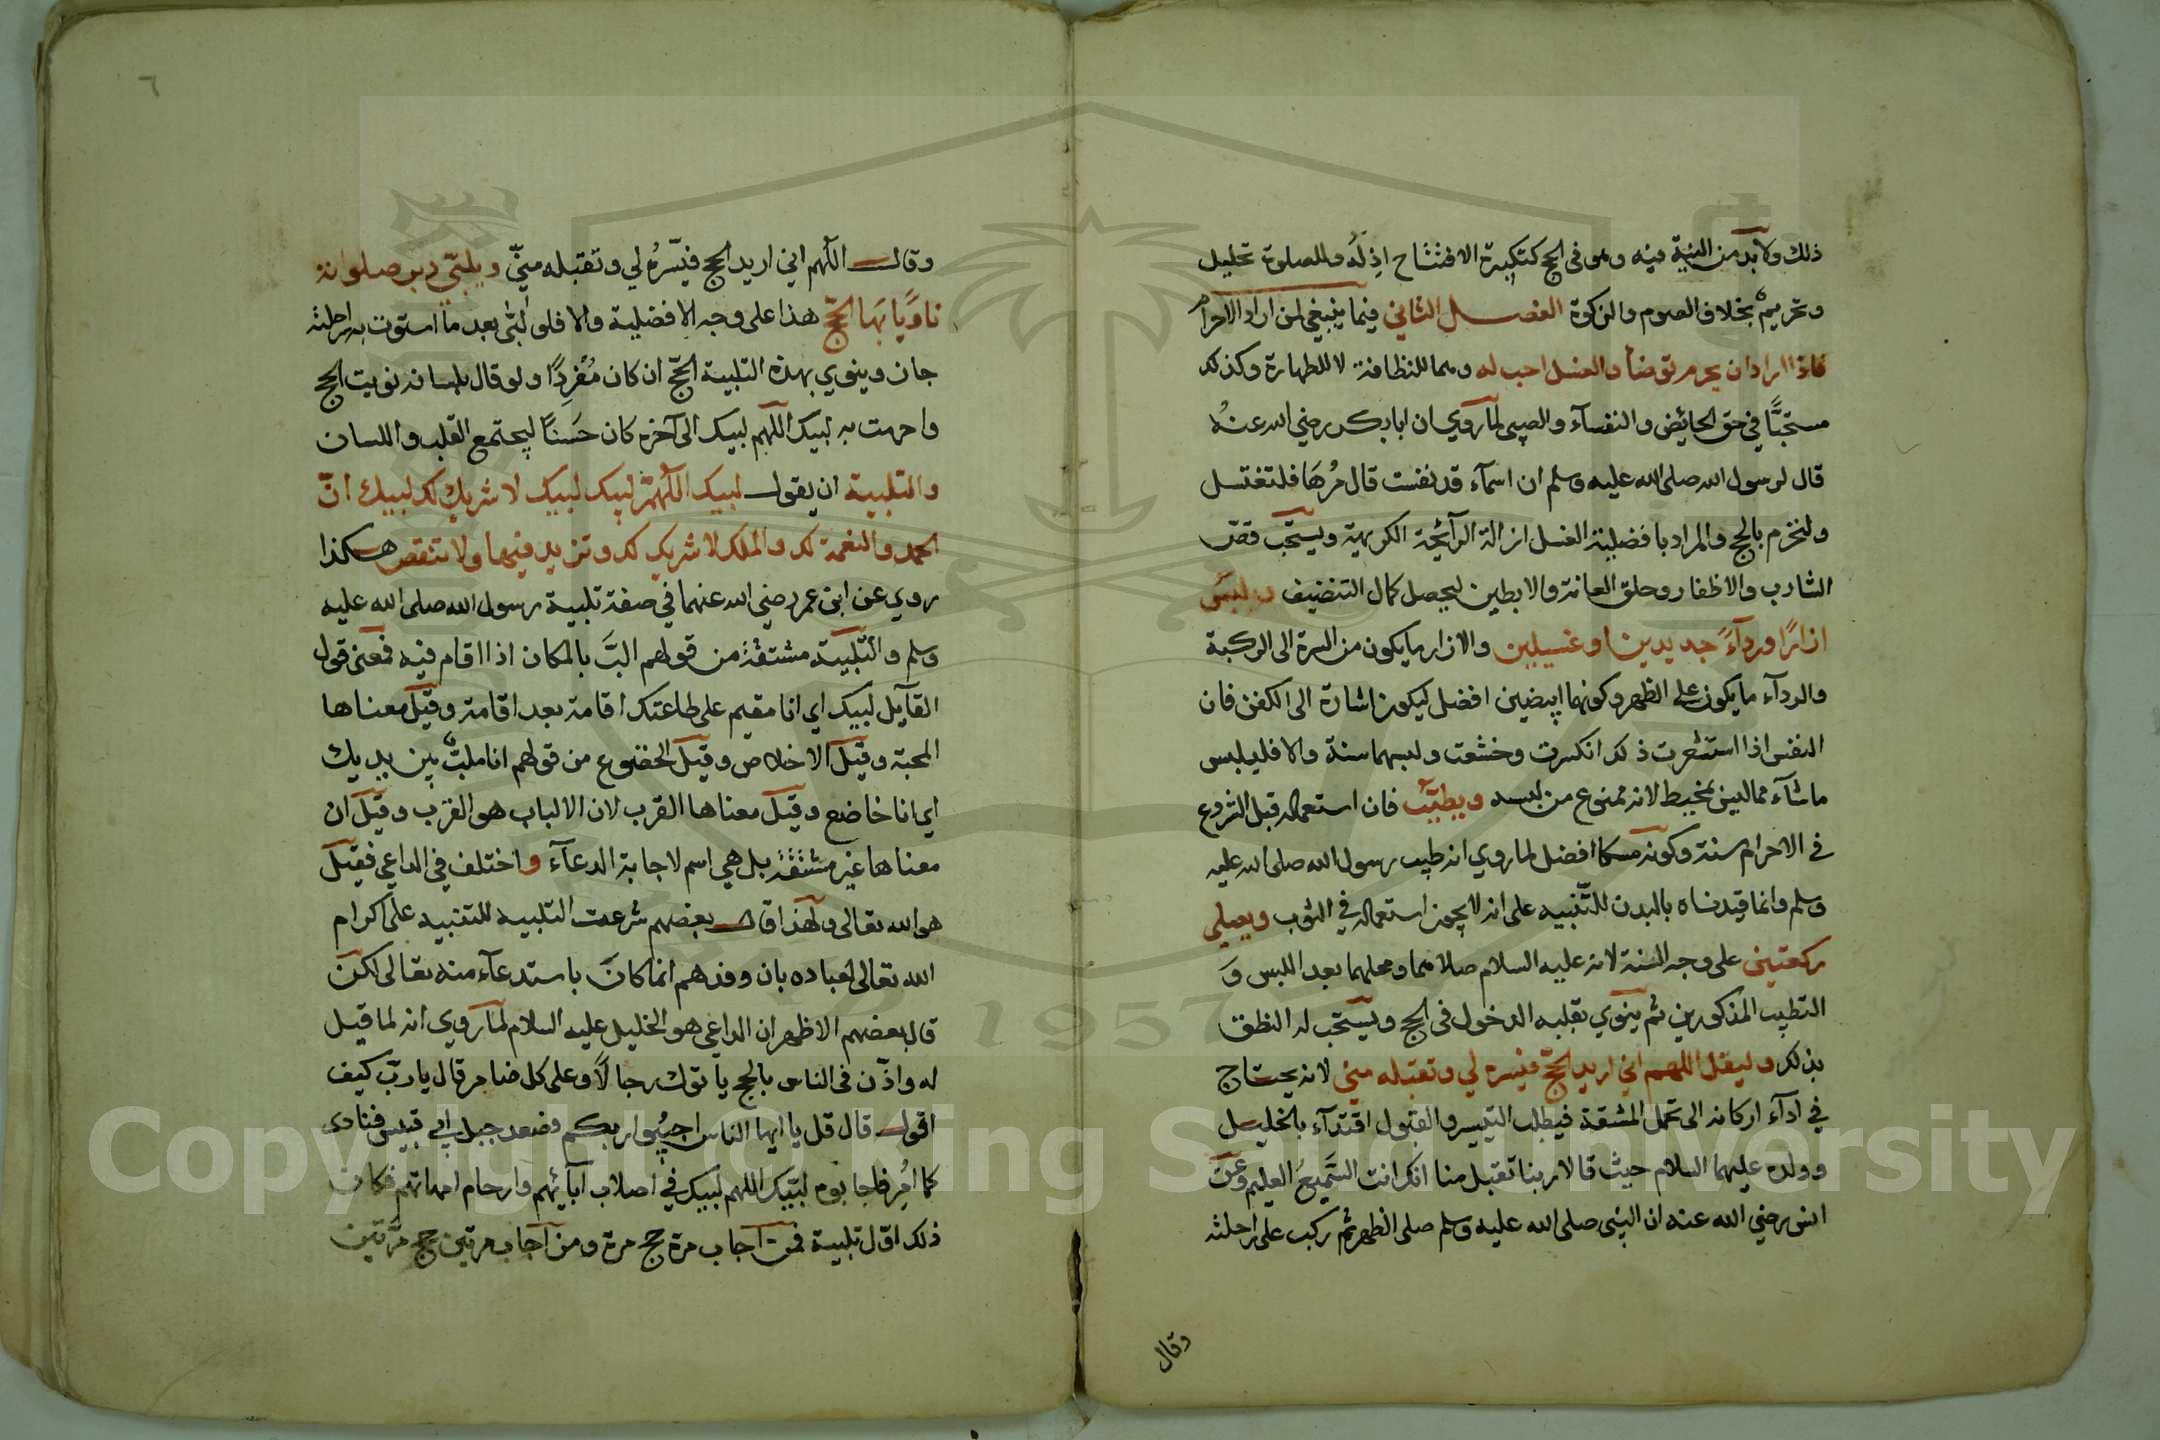 ذلك ولابد من النية فيه وهو في الحج كتكبيرة الافتتاح اذ له وللصلوة تحليل
وتحريم بخلاف الصوم والزكوة الفصل الثاني فيما ينبغي لمن اراد الاحرام
فاذا اراد ان يحرم توضأ والغسل احب له وهما للنظافة لا للطهارة وكذلك
مستحبًّا في حق الحائض والنفسآء والصبي لما روي ان ابا بكر رضي الله عنه
قال لرسول الله صلى الله عليه وسلم ان اسمآء قد نفست قال مُرهَا فلتغتسل
ولتحرم بالحج والمراد بافضلية الغسل ازالة الرآئحة الكريهة ويستحب قص
الشارب والاظفار وحلق العانة والابطين ليحصل كمال التنضيف ولبس
ازارًا وردآءً جديدين او غسيلين والازار ما يكون من السرة الى الركبة
والردآء ما يكون على الظهر وكونهما ابيضين افضل ليكون اشارة الى الكفن فان
النفس اذا استشعرت ذلك انكسرت وخشعت ولبسهما سنة والا فليلبس
ما شآء مما ليس بمخيط لانه ممنوع من لبسه ويطيّب فان استعماله قبل الشروع
في الاحرام سنة وكونه مسكا افضل لما روي انه طيب رسول الله صلى الله عليه
وسلم وانما قيدناه بالبدن للتنبيه على انه لا يجوز استعماله في الثوب ويصلي
ركعتين على وجه السنة لانه عليه السلام صلاهما ومحلهما بعد اللبس وَ
التطيب المذكورين ثم ينوي بقلبه الدخول في الحج ويستحب له النطق
بذلك وليقل اللهم اني اريد الحج فيسره لي وتقبله مني لانه يحتاج
في ادآء اركانه الى تحمل المشقة فيطلب التيسير والقبول اقتدآء بالخليل
وولده عليهما السلام حيث قالا ربنا تقبل منا انك انت السَّميعُ العليم وعن
انس رضي الله عنه ان النبي صلى الله عليه وسلم صلى الظهر ثم ركب على راحلته
وقال
٦
وقال اللّهم اني اريد الحج فيسّرهُ لي وتقبله منيّ ويلبّي دبر صلواته
ناويًا بهَا الحجّ هذا على وجه الافضلية والا فلو لبّى بعد ما استوت به راحلته
جاز وينوي بهذه التلبية الحجّ ان كان مُفْرِدًا ولو قال بلسانه نويت الحج
واحرمت به لبيك اللّهم لبيك الى آخره كان حَسنًا ليجتمع القلب واللسان
والتلبية ان يقول لبيك اللّهمّ لبيك لبيك لا شريك لك لبيك انّ
الحمد والنعمة لك والملك لا شريك لك وتزيد فيها ولا تنقص هكذا
روي عن ابن عمر رضي الله عنهما في صفة تلبية رسول الله صلى الله عليه
وسلم والتّلبية مشتقة من قولهم البَّ بالمكان اذا اقام فيه فمعنى قول
القآيل لبيك اي انا مقيم على طاعتك اقامة بعد اقامة وقيل معناها
المحبة وقيل الاخلاص وقيل الخضوع من قولهم انا ملبٌّ بين يديك
اي انا خاضع وقيل معناها القرب لان الالباب هو القرب وقيل ان
معناها غير مشتقة بل هي اسم لاجابة الدعآء واختلف في الداعي فقيل
هو الله تعالى ولهذا قال بعضهم شرعت التلبيه للتنبيه على اكرام
الله تعالى لعباده بان وفدهم انما كانَ باستدعآء منه تعالى لكن
قال بعضهم الاظهر ان الداعي هو الخليل عليه السلام لما روي انه لما قيل
له واذّن في الناس بالحج ياتوك رجالاً وعلى كل ضامر قال يا ربّ كيف
اقول قال قل يا ايها الناس اجيبوا ربكم فصعد جبل ابي قبيس فنادى
كما اُمِر فاجابوه لبّيك اللهم لبيك في اصلاب آبآئهم وارحام امهاتهم فكان
ذلك اوّل تلبية فمن اجاب مرة حج مرة ومن اجاب مرتين حج مرّتين
1957
Copyright © King Saud University